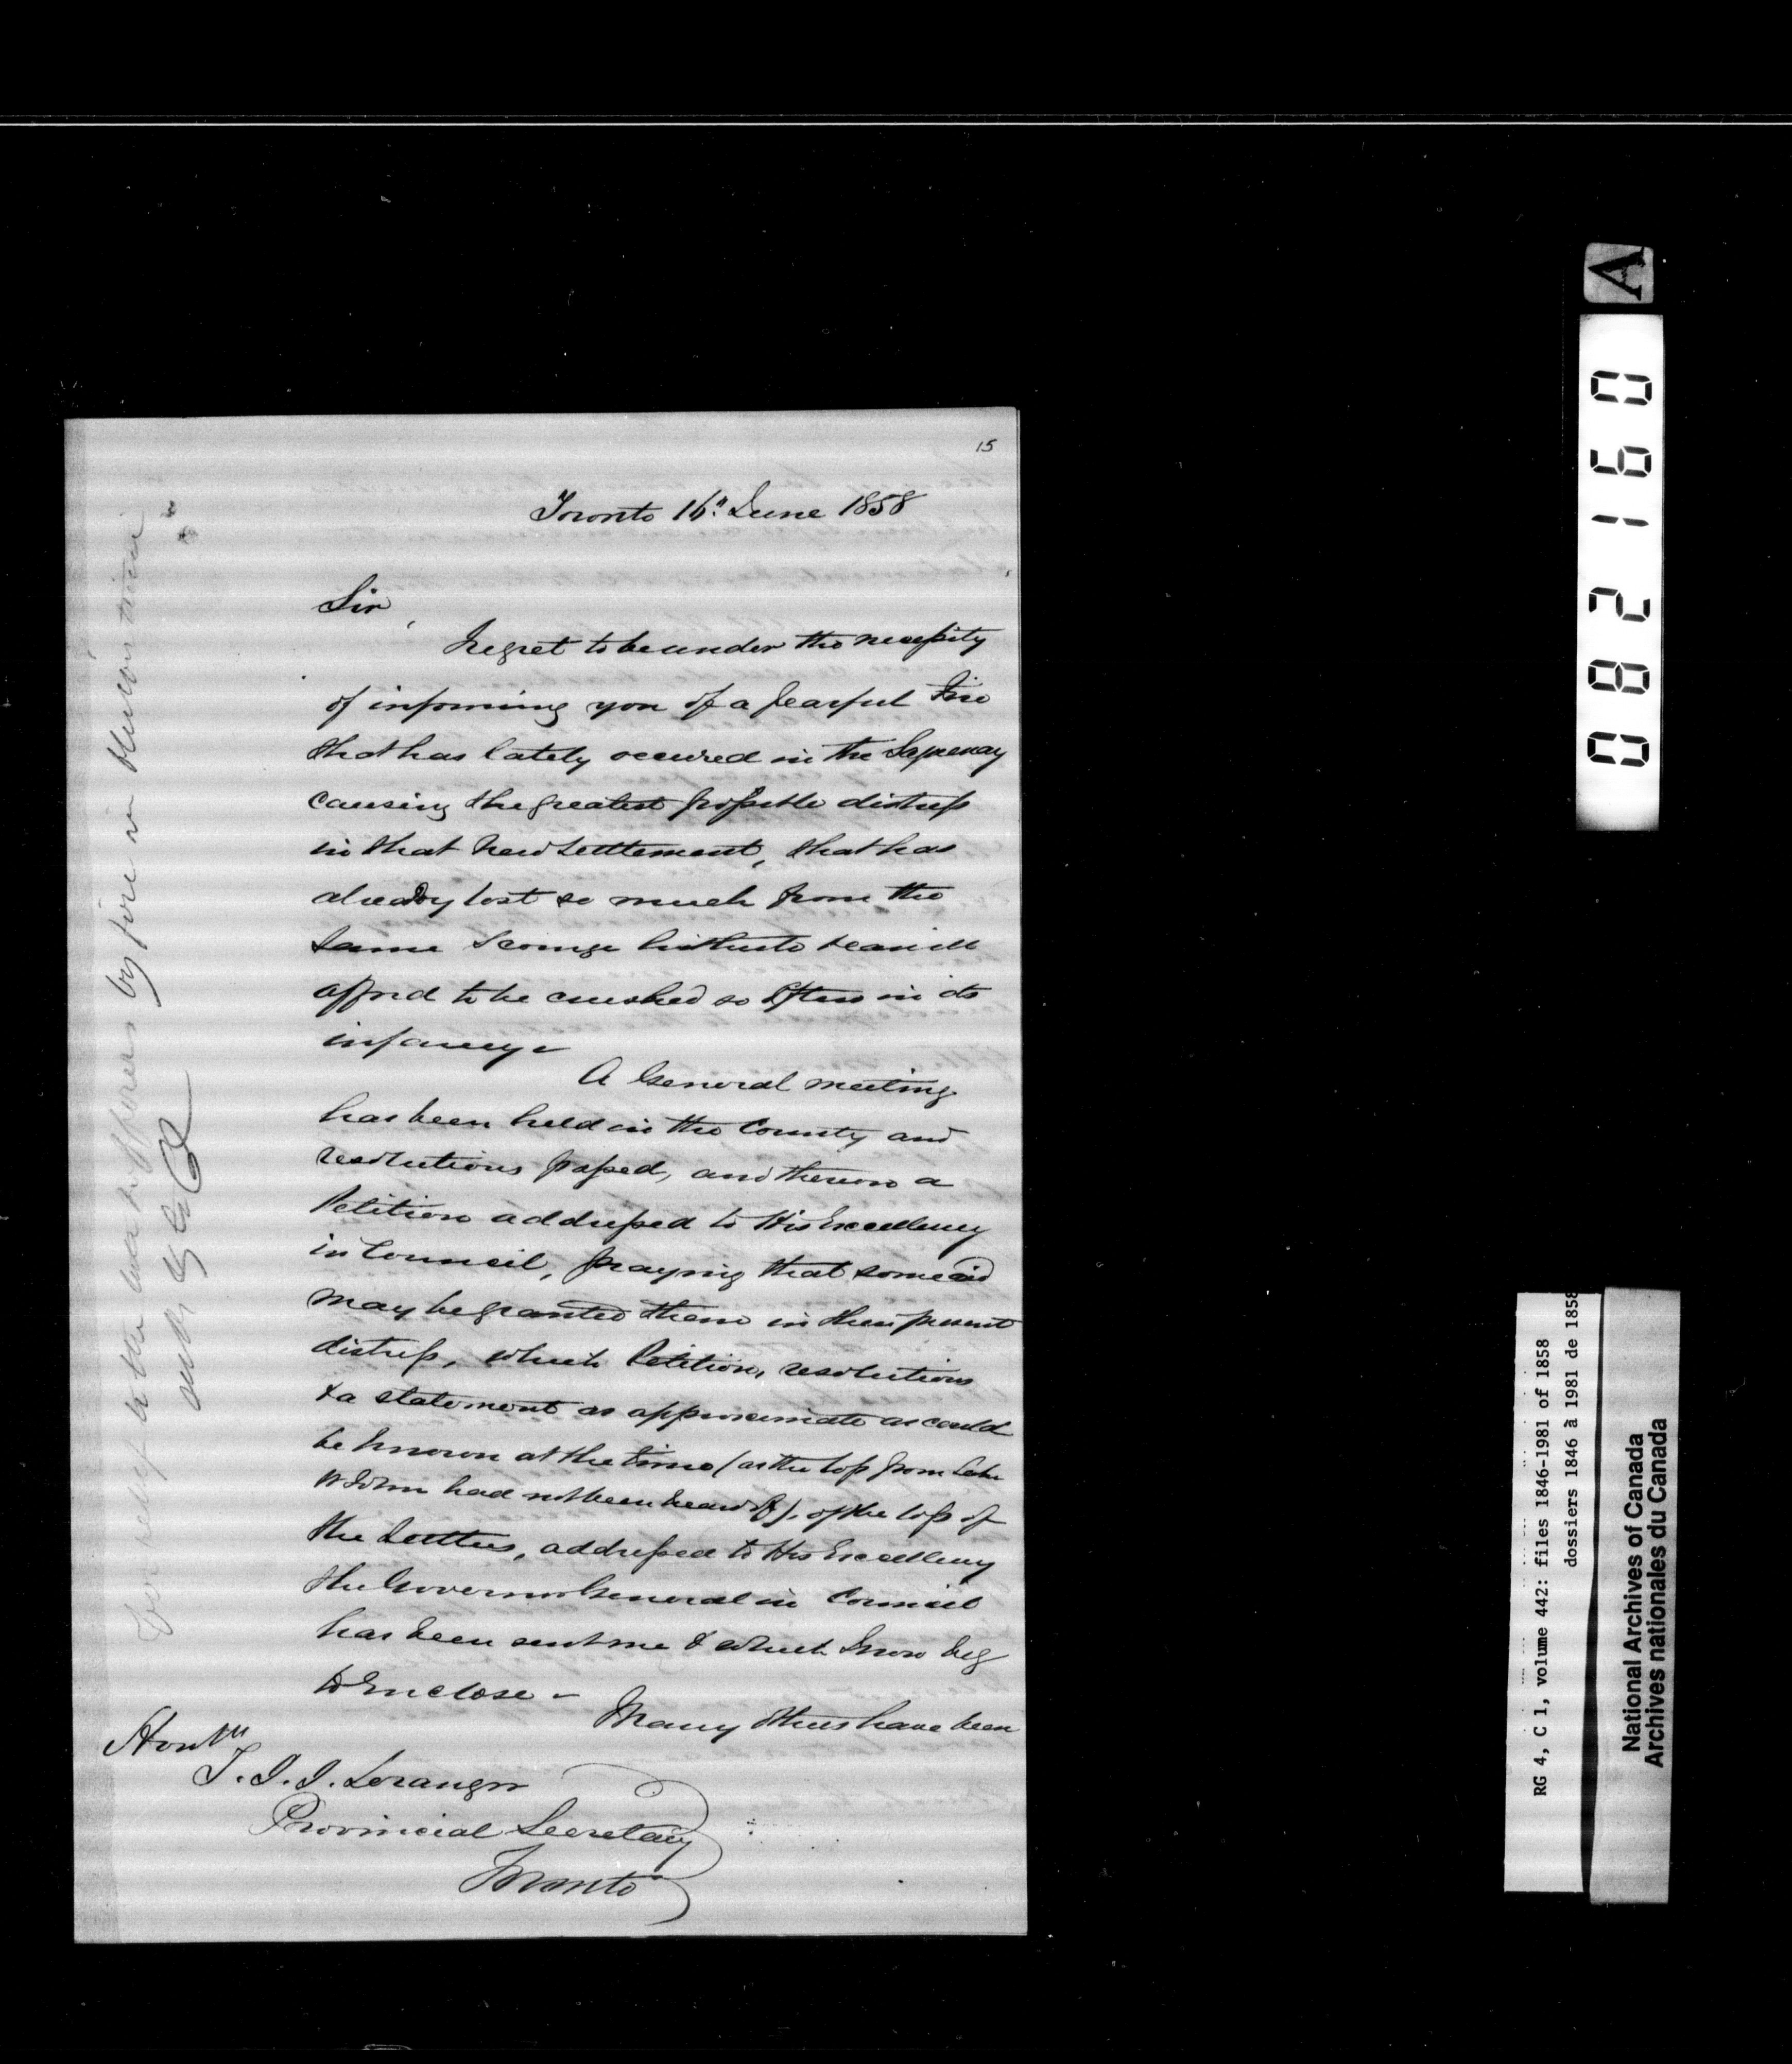 15
Toronto 16" June 1858
Sir,
I regret to be under the necessity
of informing you of a fearful Fire
that has lately occured in the Saguenay
causing the greatest possible distress
in that New Settlement, that has
already lost so much from the
same Scourge hitherto & can ill
afford to be crushed so often in its
infancy
A General meeting
has been held in the County and
resolutions passed, and thereon a
Petition addressed to His Excellency
in Council, praying that some aid
may be granted them in their present
distress, which Petition, resolutions
& a statement as approximate as could
be known at the time (as the loss from Lake
St John had not been heard of), of the loss of
the Settlers, addressed to His Excellency
the Governor General in Council
has been sent me & which I now beg
to Enclose -
Many others have been
Honble
T. J. J. Loranger
Provincial Secretary
Toronto
relief to the sufferers by fire in
A
082160
RG 4, C 1, volume 442: files 1846-1981 of 1858
dossiers 1846 à 1981 de 1858
National Archives of Canada
Archives nationales du Canada